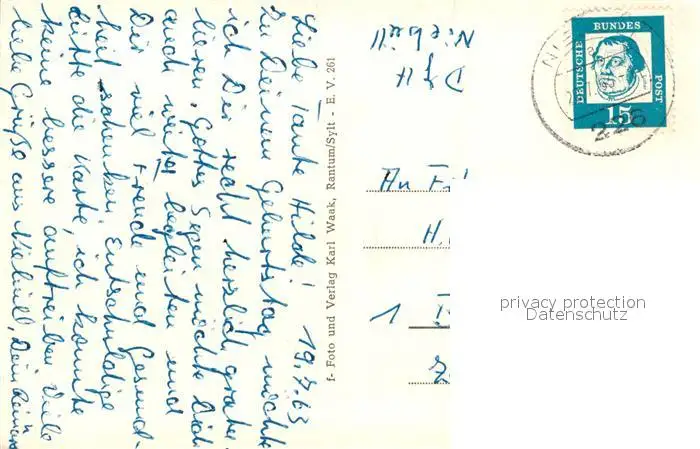 Liebe Tante Hilde! 19.7.63
Zu Deinem Geburtstag möchte
ich Dir recht herzlich gratu-
lieren. Gottes Segen möchte Dich
auch weiter begleiten und
Dir viel Freude und Gesund-
heit schenken. Entschuldige
bitte die Karte, ich konnte
keine bessere auftreiben. Viele
liebe Grüße aus Niebüll, Dein
f- Foto und Verlag Karl Waak, Rantum/Sylt - E. V. 261
Niebüll
An
H.
1
DEUTSCHE
BUNDES
POST
15
privacy protection
Datenschutz